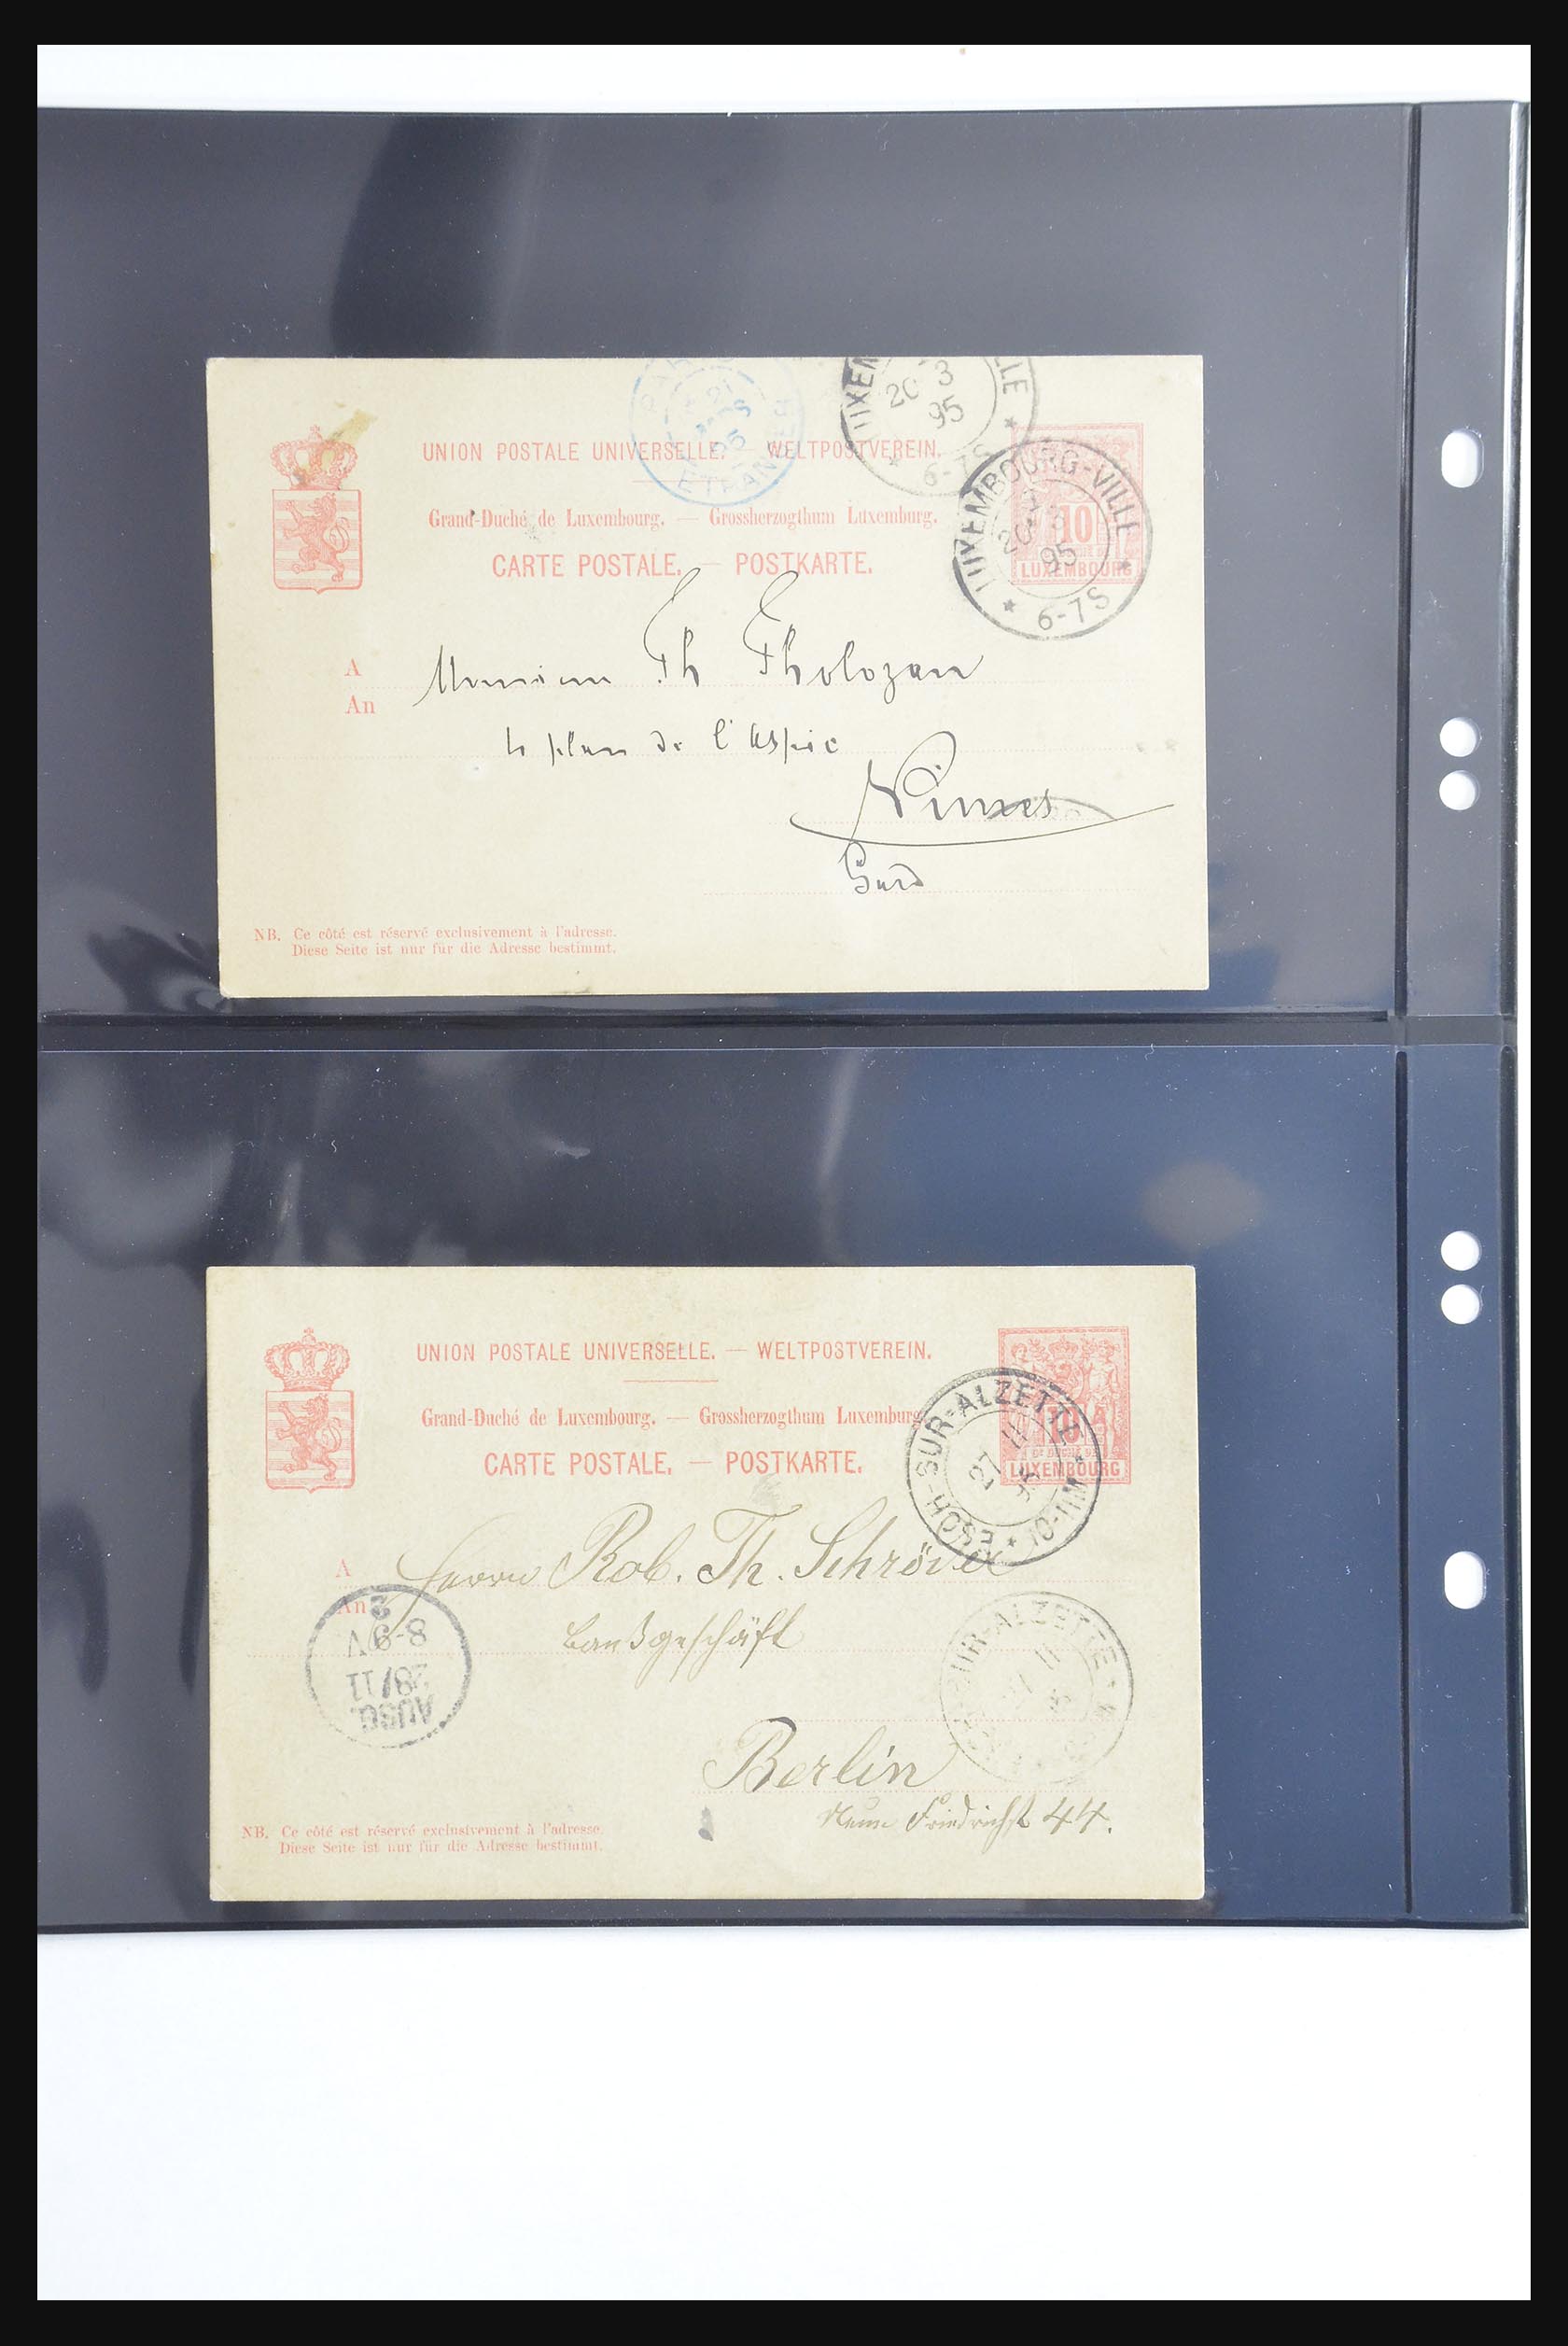 20 3
95
6-7S
ETRANGER
UNION POSTALE UNIVERSELLE. — WELTPOSTVEREIN.
Grand-Duché de Luxembourg. — Grossherzogthum Luxemburg.
CARTE POSTALE. — POSTKARTE.
LUXEMBOURG-VILLE
20 3
95
6-7S
10
LUXEMBOURG
A
An
Monsieur Th Tholozan
plan de l'Aspic
Nimes
Gard
NB. Ce côté est réservé exclusivement à l'adresse.
Diese Seite ist nur für die Adresse bestimmt.
UNION POSTALE UNIVERSELLE. — WELTPOSTVEREIN.
Grand-Duché de Luxembourg. — Grossherzogthum Luxemburg
CARTE POSTALE. — POSTKARTE.
10
LUXEMBOURG
ESCH-SUR-ALZETTE
27 11
95
10-11M
A
An
Herrn Rob. Th. Schröder
Bankgeschäft
Berlin
Neue Friedrichst 44.
AUSG.
28/11
8-9V
2
SUR-ALZETTE
11
NB. Ce côté est réservé exclusivement à l'adresse.
Diese Seite ist nur für die Adresse bestimmt.